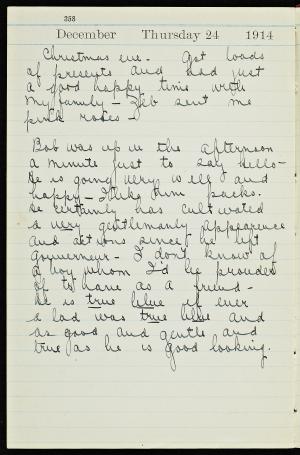 358
December Thursday 24 1914
Christmas eve. Got loads
of presents and had just
a good happy time with
my family - Zeb sent me
pink roses -
Bob was up in the afternoon
a minute just to say hello -
He is going very well and
happy - I like him packs.
He certainly has cultivated
a very gentlemanly appearence
and actions since he left
Gouverneur - I don't know of
a boy whom I'd be prouder
of to have as a friend -
He is true blue if ever
a lad was true blue and
as good and gentle and
true as he is good looking.